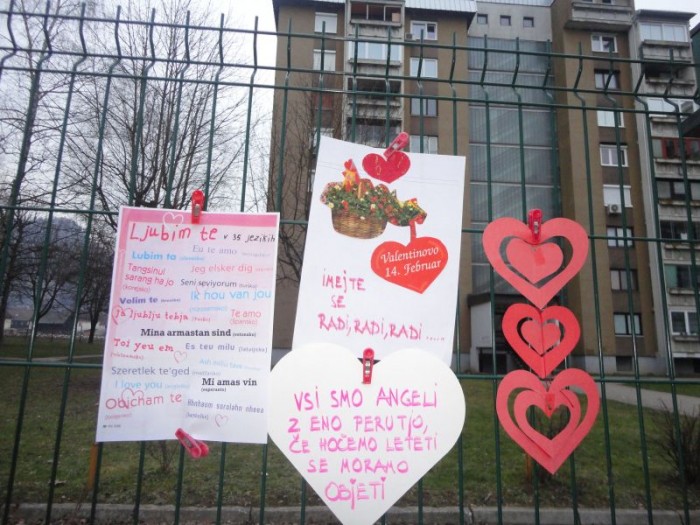 Ljubim te v 35 jezikih
Eu te amo
Lubim ta
Jeg elsker dig
Tangsinul
sarang ha jo
Seni seviyorum
Ik hou van jou
Volim te
Te amo
Ja ljublju tebja
Mina armastan sind
Toi yeu em
Es teu milu
Szeretlek te'ged
I love you
Mi amas vin
Obicham te
Valentinovo
14. Februar
IMEJTE
SE
RADI, RADI, RADI .....
VSI SMO ANGELI
Z ENO PERUTJO,
ČE HOČEMO LETETI
SE MORAMO
OBJETI